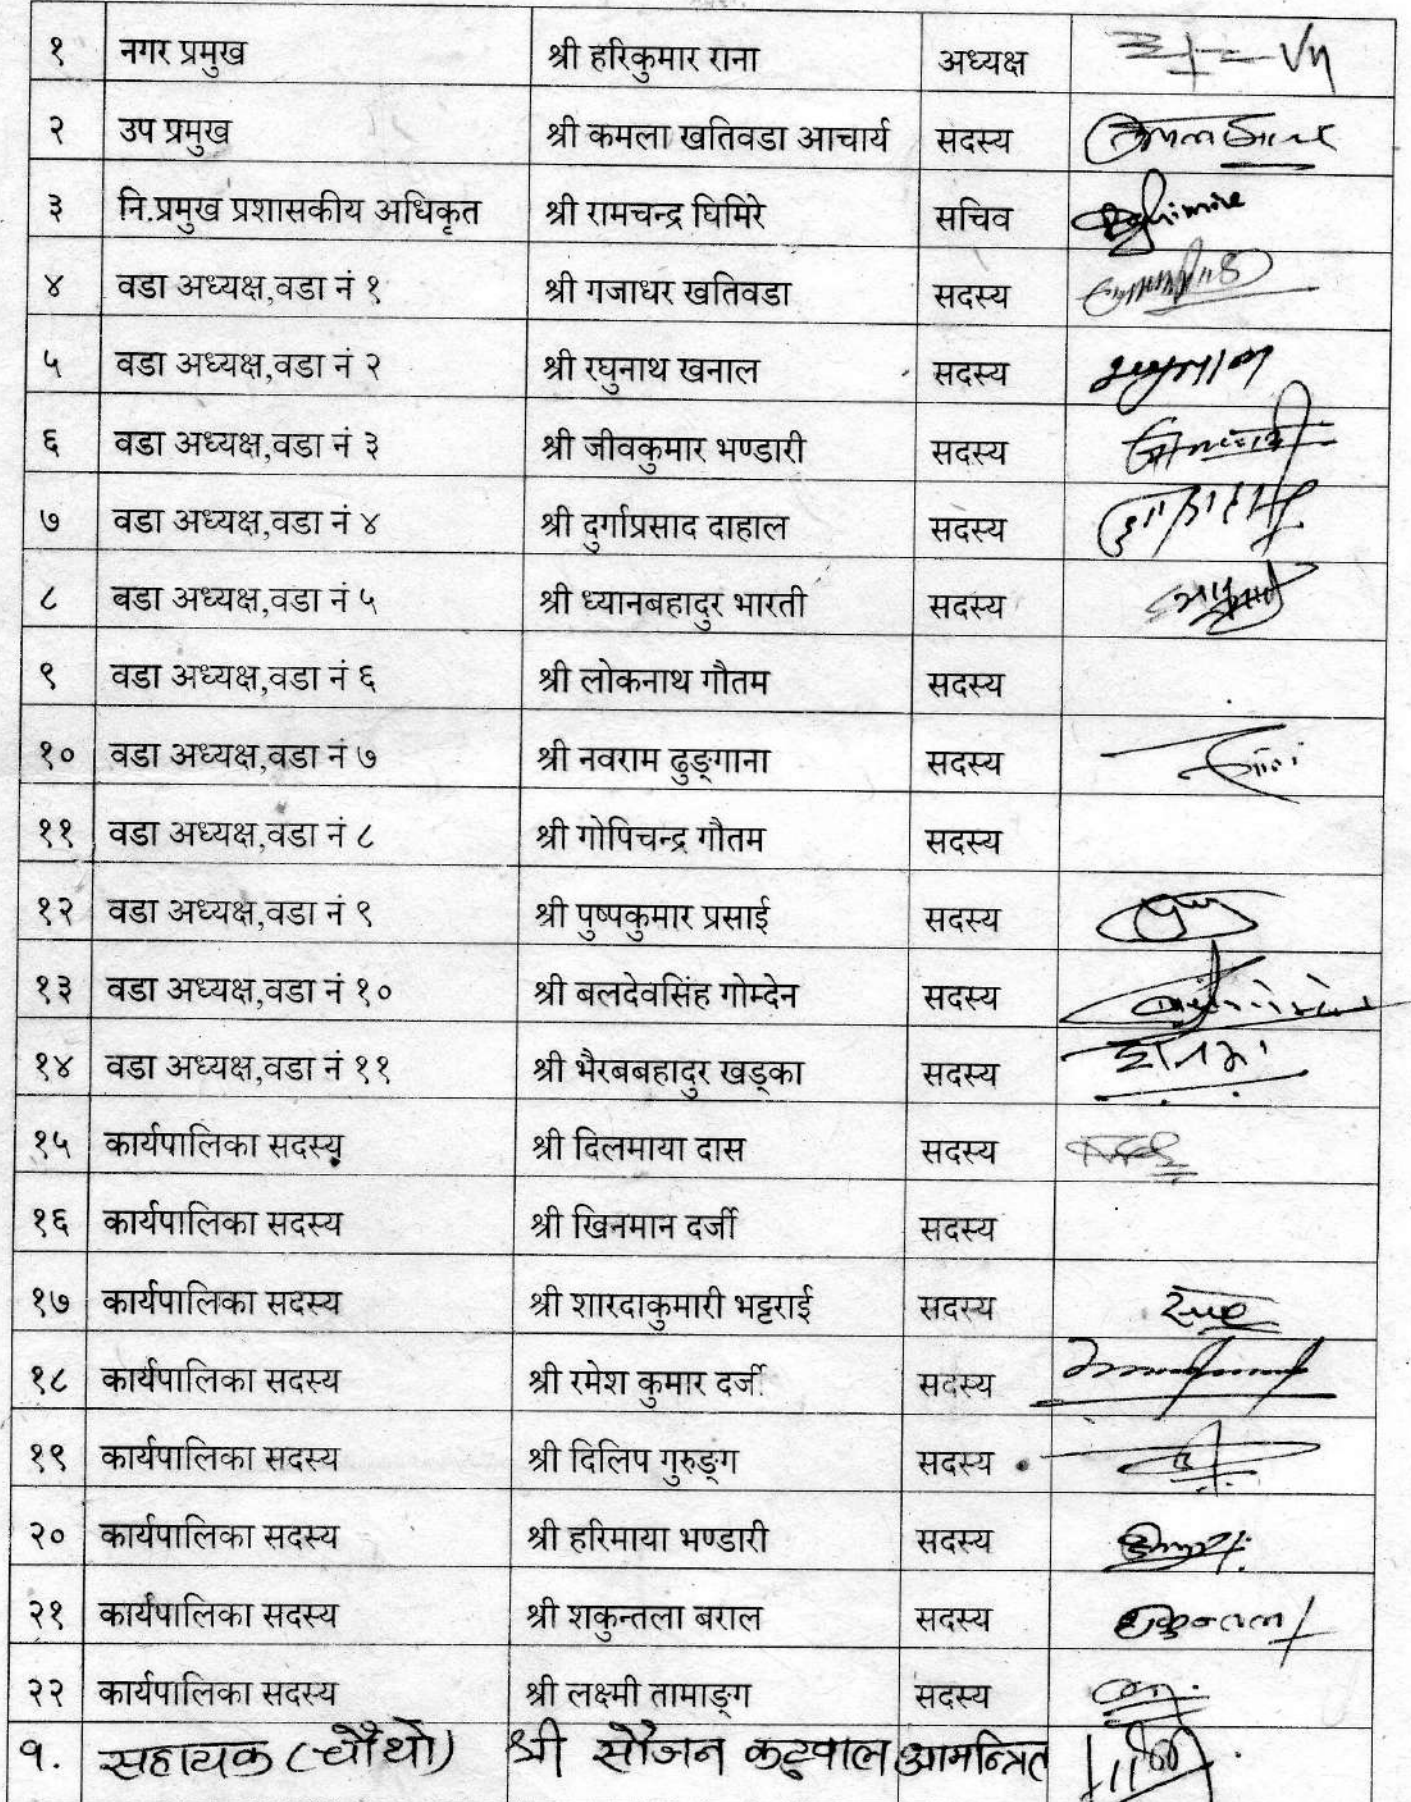 १ नगर प्रमुख श्री हरिकुमार राना अध्यक्ष
२ उप प्रमुख श्री कमला खतिवडा आचार्य सदस्य
३ नि.प्रमुख प्रशासकीय अधिकृत श्री रामचन्द्र घिमिरे सचिव
४ वडा अध्यक्ष,वडा नं १ श्री गजाधर खतिवडा सदस्य
५ वडा अध्यक्ष,वडा नं २ श्री रघुनाथ खनाल सदस्य
६ वडा अध्यक्ष,वडा नं ३ श्री जीवकुमार भण्डारी सदस्य
७ वडा अध्यक्ष,वडा नं ४ श्री दुर्गाप्रसाद दाहाल सदस्य
८ वडा अध्यक्ष,वडा नं ५ श्री ध्यानबहादुर भारती सदस्य
९ वडा अध्यक्ष,वडा नं ६ श्री लोकनाथ गौतम सदस्य
१० वडा अध्यक्ष,वडा नं ७ श्री नवराम ढुङ्गाना सदस्य
११ वडा अध्यक्ष,वडा नं ८ श्री गोपिचन्द्र गौतम सदस्य
१२ वडा अध्यक्ष,वडा नं ९ श्री पुष्पकुमार प्रसाई सदस्य
१३ वडा अध्यक्ष,वडा नं १० श्री बलदेवसिंह गोम्देन सदस्य
१४ वडा अध्यक्ष,वडा नं ११ श्री भैरबबहादुर खड्का सदस्य
१५ कार्यपालिका सदस्य श्री दिलमाया दास सदस्य
१६ कार्यपालिका सदस्य श्री खिनमान दर्जी सदस्य
१७ कार्यपालिका सदस्य श्री शारदाकुमारी भट्टराई सदस्य
१८ कार्यपालिका सदस्य श्री रमेश कुमार दर्जी सदस्य
१९ कार्यपालिका सदस्य श्री दिलिप गुरुङ्ग सदस्य
२० कार्यपालिका सदस्य श्री हरिमाया भण्डारी सदस्य
२१ कार्यपालिका सदस्य श्री शकुन्तला बराल सदस्य शकुन्तला
२२ कार्यपालिका सदस्य श्री लक्ष्मी तामाङ्ग सदस्य
१. सहायक (चौथो) श्री सौजन कटुवाल आमन्त्रित